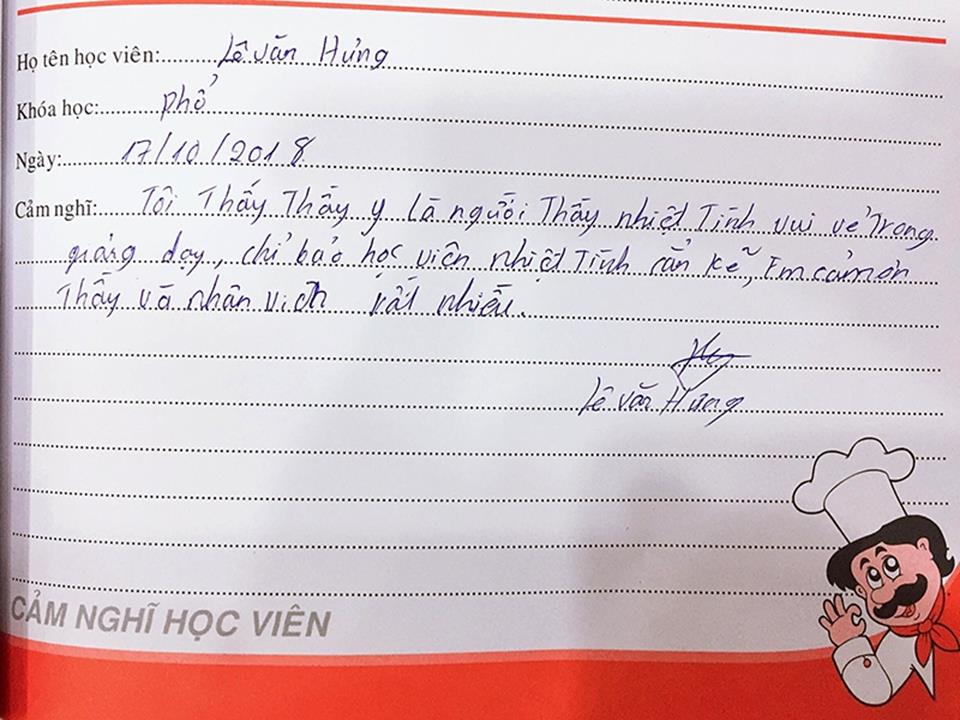 Họ tên học viên: Lê văn Hưng
Khóa học: phở
Ngày: 17/10/2018
Cảm nghĩ: Tôi Thấy Thầy y là người Thầy nhiệt Tình vui vẻ Trong
giảng dạy, chỉ bảo học viên nhiệt Tình cẩn kẽ, Em cảm ơn
Thầy và nhân viên rất nhiều.
Lê văn Hưng
CẢM NGHĨ HỌC VIÊN